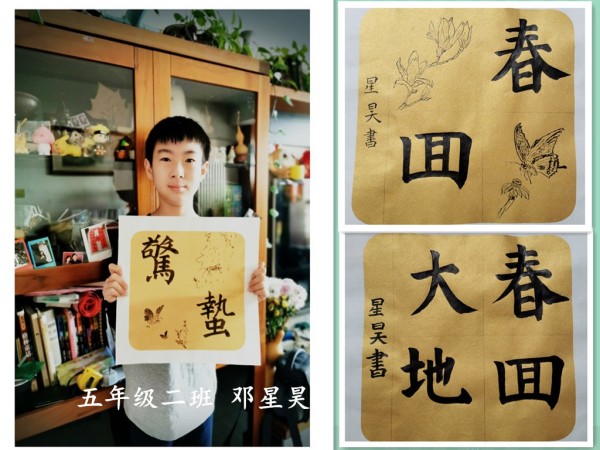 驚
蟄
五年级二班 邓星昊
春
回
星昊書
春回
大地
星昊書